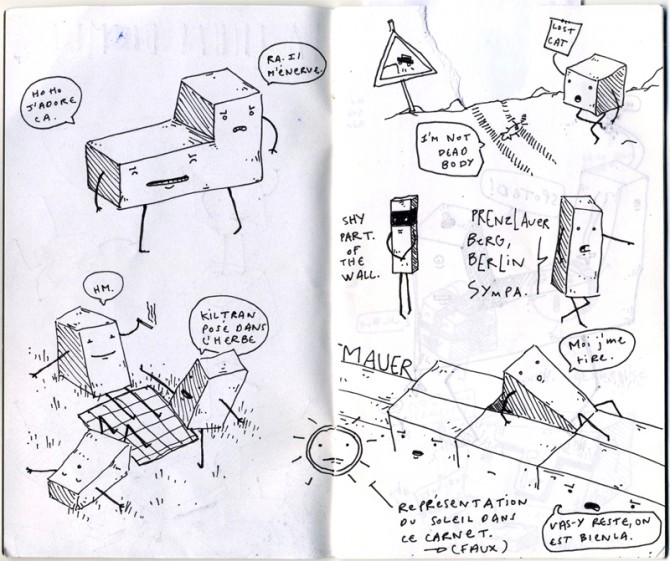 HO HO
J'ADORE
ÇA.
RA. IL
M'ÉNERVE.
HM.
KILTRAN
POSE DANS
L'HERBE
LOST
CAT
I'M NOT
DEAD
BODY
SHY
PART.
OF
THE
WALL.
PRENZLAUER
BERG,
BERLIN
SYMPA.
MAUER
MOI J'ME
TIRE.
REPRÉSENTATION
DU SOLEIL DANS
CE CARNET.
→ (FAUX)
VAS-Y RESTE, ON
EST BIEN LÀ.